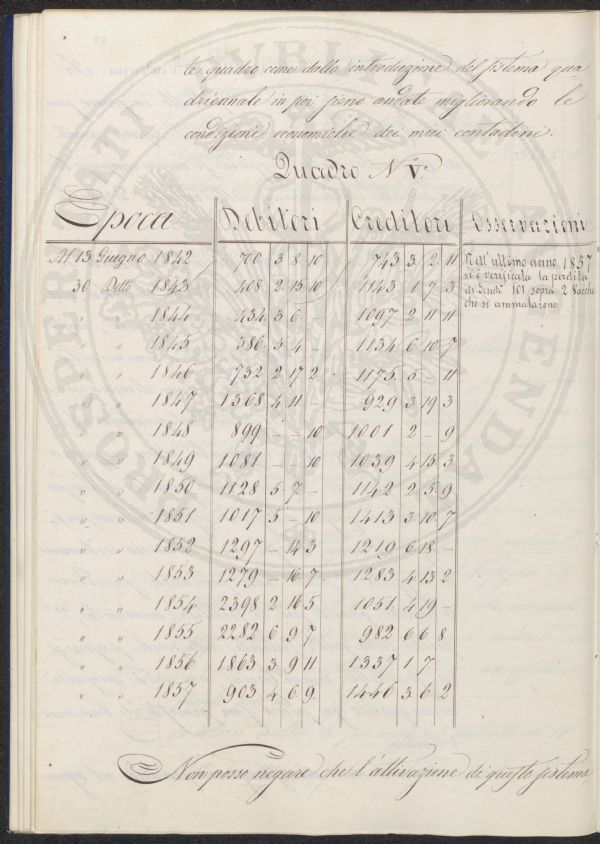 te quadro come dalla introduzione del sistema qua
driennale in poi sieno andate migliorando le
condizioni economiche dei miei contadini.
Quadro N V.°
Epoca Debitori Creditori Osservazioni
Al 13 Giugno 1842 700 3 8 10 743 3 2 11 Nell'ultimo anno 1857
si è verificata la perdita
30 Detto 1843 408 2 15 10 1143 1 7 3 di Scudi 101 sopra 2 Vacche
che si ammalarono
" " 1844 434 3 6 – 1097 2 11 11
" " 1845 386 5 4 – 1134 6 10 7
" " 1846 732 2 17 2 1175 5 – 11
" " 1847 1368 4 11 929 3 19 3
" " 1848 899 – – 10 1001 2 – 9
" " 1849 1081 – – 10 1039 4 15 3
" " 1850 1128 5 7 – 1142 2 5 9
" " 1851 1017 5 – 10 1413 3 10 7
" " 1852 1297 – 14 3 1219 6 18 –
" " 1853 1279 – 16 7 1283 4 13 2
" " 1854 2398 2 16 5 1051 4 19 –
" " 1855 2282 6 9 7 982 6 6 8
" " 1856 1863 3 9 11 1337 1 7
" " 1857 903 4 6 9 1446 3 6 2
Non posso negare che l'attivazione di questo sistema